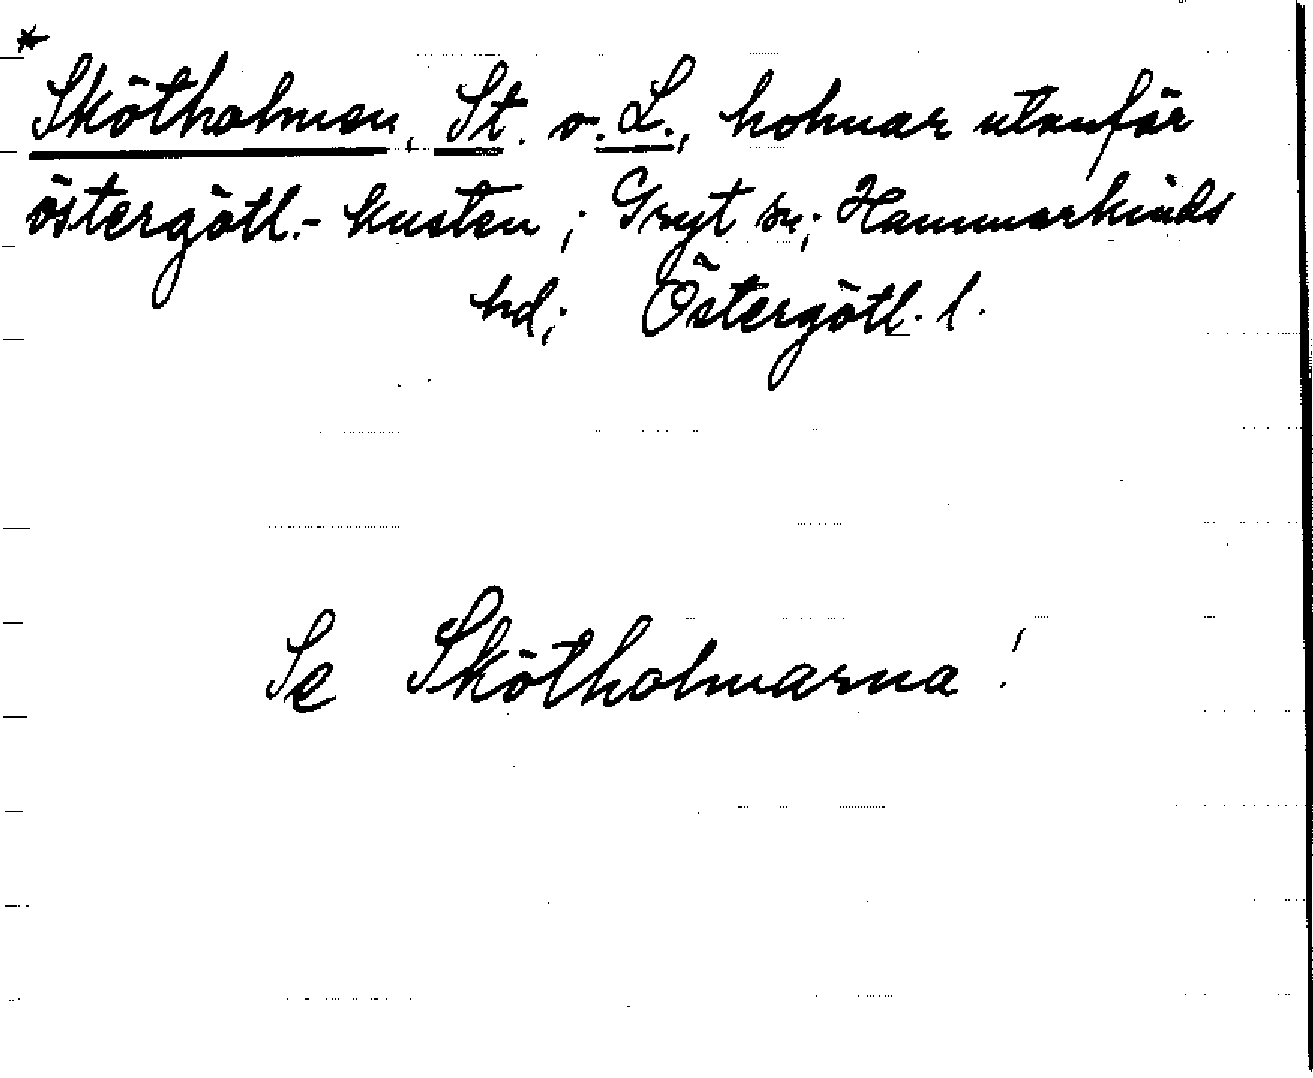 * Skötholmen, St. o. L., holmar utanför
östergötl.- kusten; Gryt sn; Hammarkinds
hd; Östergötl. l.
Se Skötholmarna!